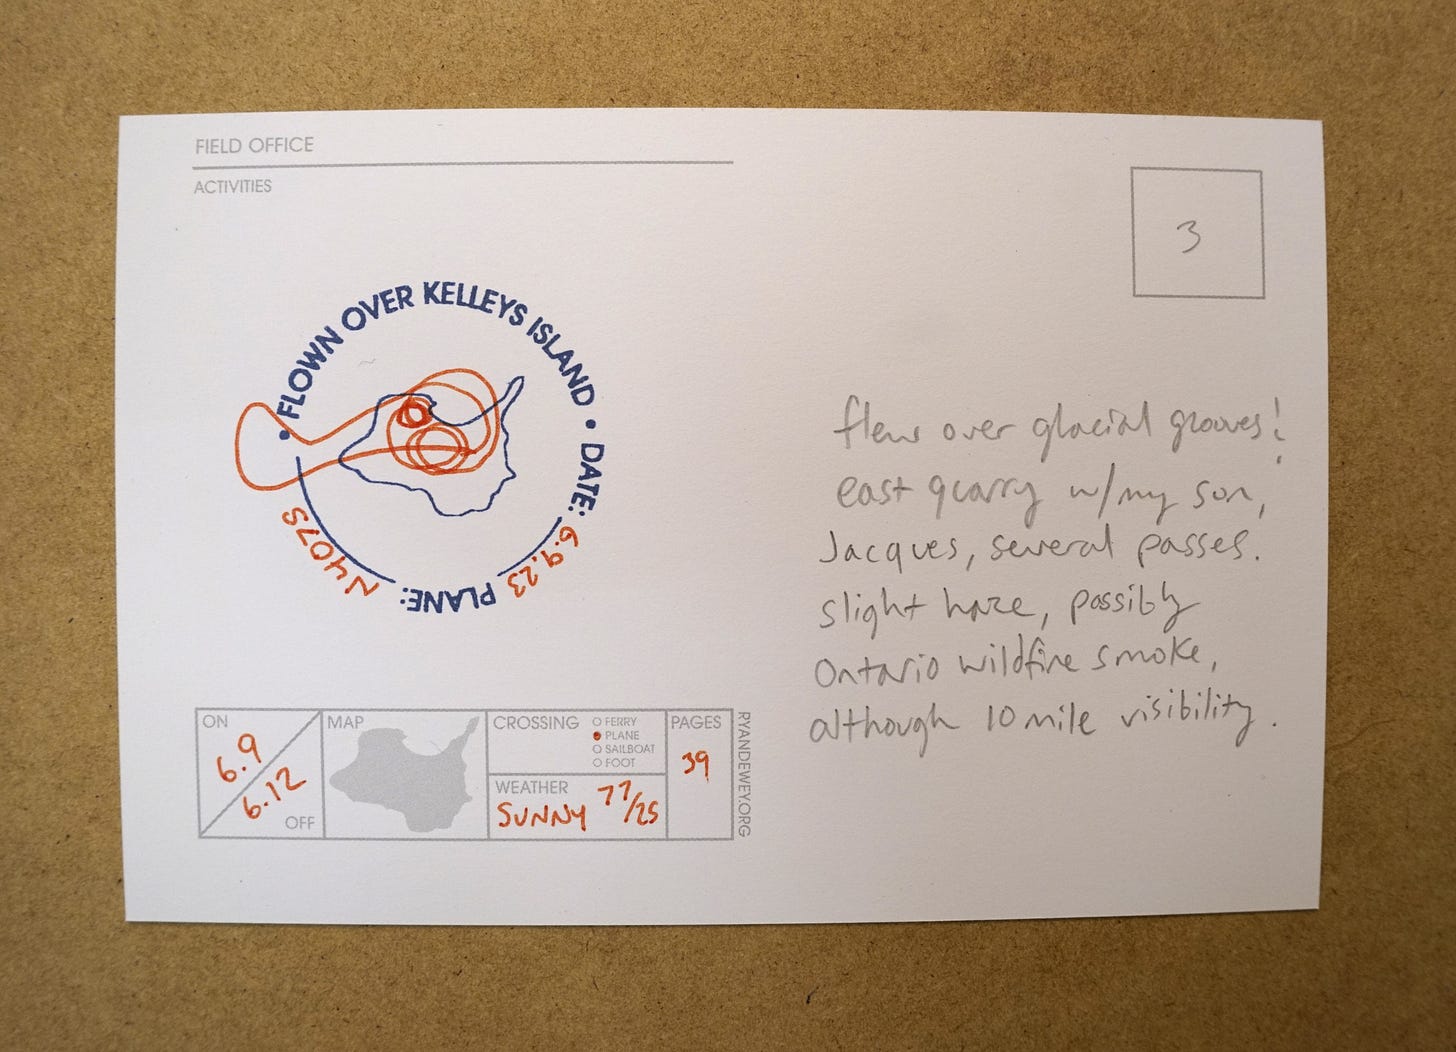 FIELD OFFICE
ACTIVITIES
3
• FLOWN OVER KELLEYS ISLAND • DATE: 6.9.23 PLANE: N4075
flew over glacial grooves!
east quarry w/my son,
Jacques, several passes.
slight haze, possibly
Ontario wildfire smoke,
although 10 mile visibility.
ON
6.9
6.12
OFF
MAP
CROSSING
FERRY
PLANE
SAILBOAT
FOOT
WEATHER
SUNNY 77/25
PAGES
39
RYANDEWEY.ORG